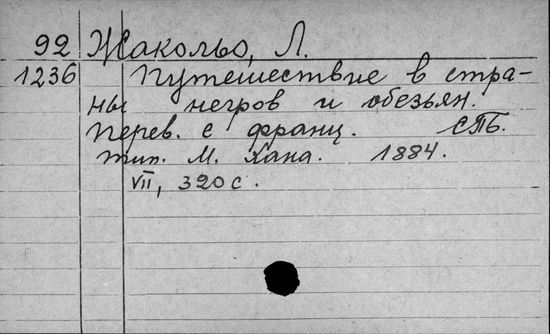 92 Жакольо, Л.
1236 Путешествие в стра-
ны негров и обезьян.
Перев. с франц. СПБ.
тип. М. Хана. 1884.
VII, 320 с.